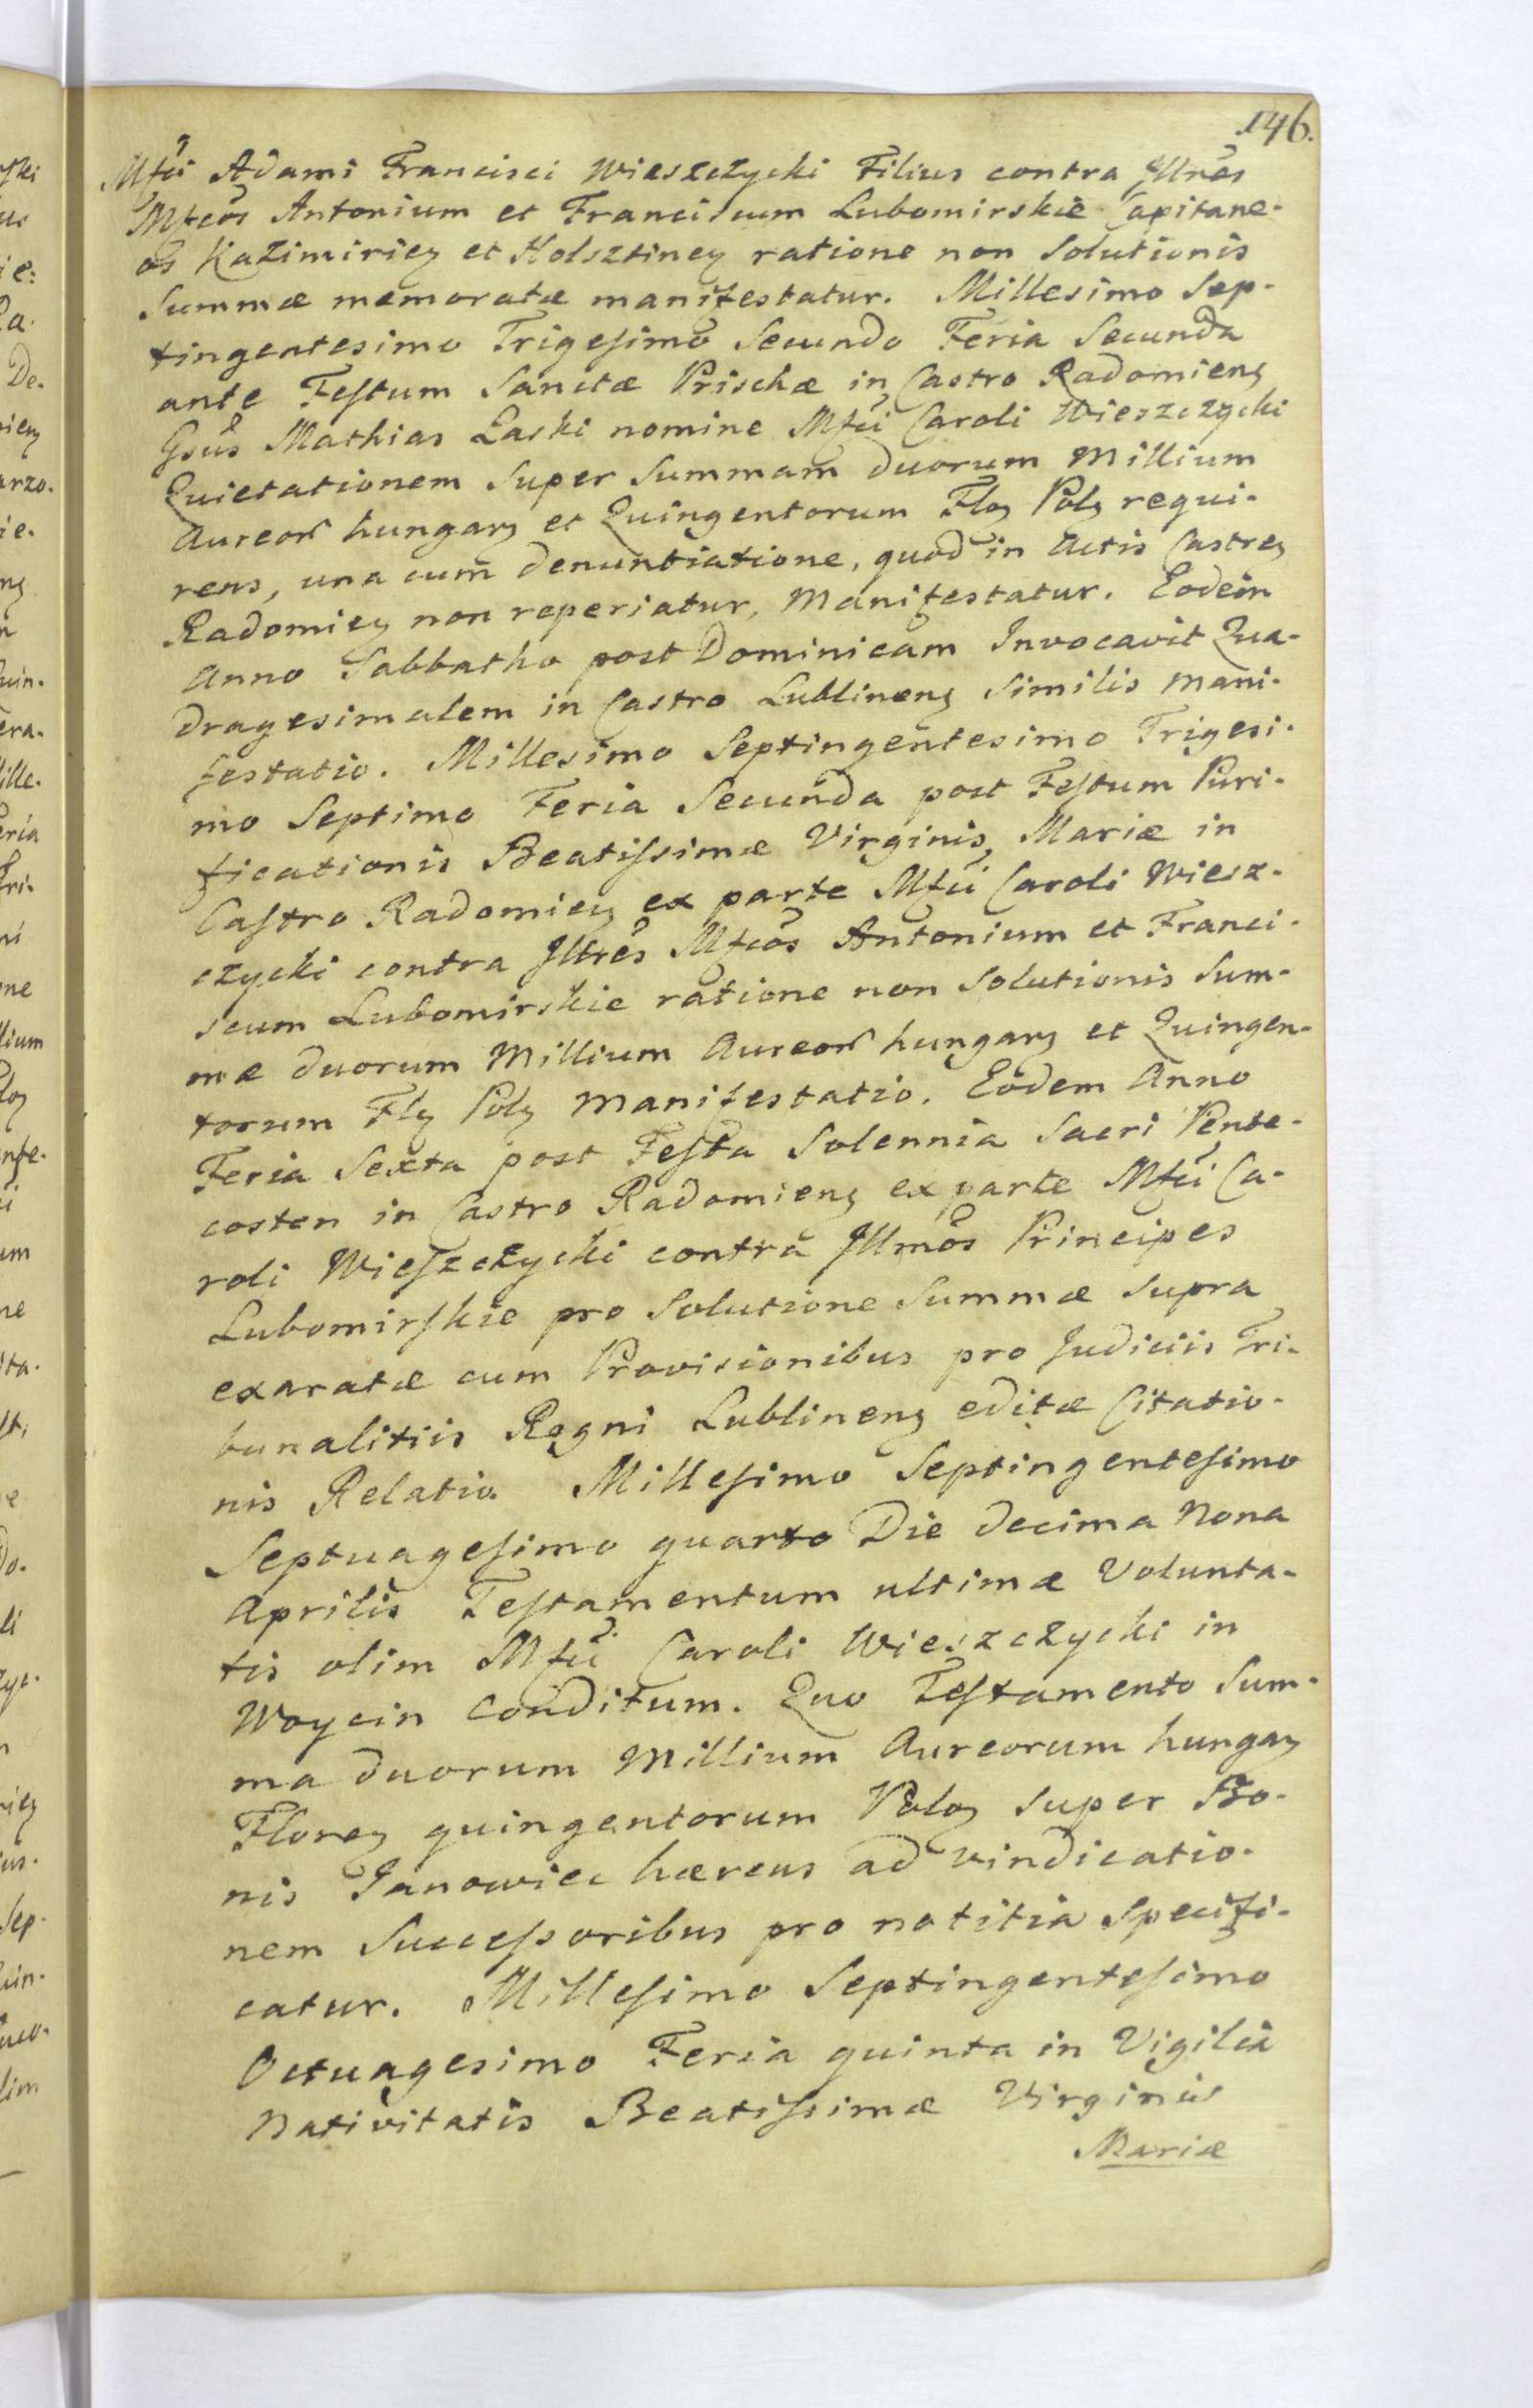 146.
Mfci Adami Francisci Wieszczycki Filius contra Jllres
Mfcos Antonium et Franciscum Lubomirskie Capitane-
os Kazimiriez et Holsztinez ratione non Solutionis
Summæ memoratæ manifestatur. Millesimo Sep-
tingentesimo Trigesimo Secundo Feria Secunda
ante Festum Sanctæ Prischæ in Castro Radomienz
Gsus Mathias Laski nomine Mfci Caroli Wieszczycki
Quietationem Super Summam duorum Millium
Aureor hungarz et Quingentorum Floz Polz requi-
rens, una cum denuntiatione, quod in Actis Castrez
Radomiez non reperiatur, Manifestatur. Eodem
Anno Sabbatho post Dominicam Invocavit Qua-
dragesimalem in Castro Lublinenz Similis Mani-
festatio. Millesimo Septingentesimo Trigesi-
mo Septimo Feria Secunda post Festum Puri-
ficationis Beatissimæ Virginis Mariæ in
Castro Radomiez ex parte Mfci Caroli Wiesz-
czycki contra Jllres Mfcos Antonium et Franci-
scum Lubomirskie ratione non Solutionis Sum-
mæ duorum Millium Aureor hungarz et Quingen-
torum Flz Polz Manifestatio. Eodem Anno
Feria Sexta post Festa Solennia Sacri Pente-
costen in Castro Radomienz ex parte Mfci Ca-
roli Wieszczycki contra Jllmos Principes
Lubomirskie pro Solutione Summæ Supra
exaratæ cum Provisionibus pro Judiciis Tri-
bunalitiis Regni Lublinenz editæ Citatio-
nis Relatio. Millesimo Septingentesimo
Septuagesimo quarto Die decima Nona
Aprilis Testamentum ultimæ Volunta-
tis olim Mfci Caroli Wieszczycki in
Woycin Conditum. Quo Testamento Sum-
ma duorum Millium Aureorum hungarz
Florez quingentorum Poloz Super Bo-
nis Janowiec hærens ad vindicatio-
nem Successoribus pro notitia Specifi-
catur. Millesimo Septingentesimo
Octuagesimo Feria quinta in Vigilia
Nativitatis Beatissimæ Virginis
Mariæ